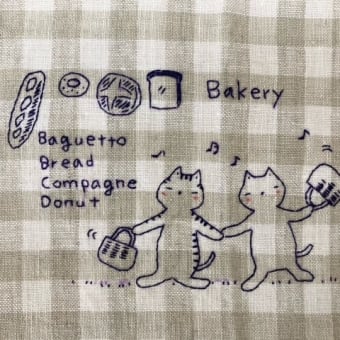 Bakery
Baguetto
Bread
Compagne
Donut